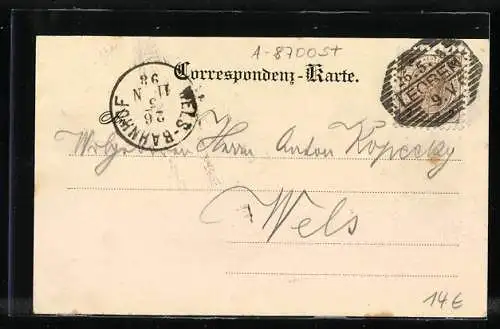 A-8700St
Correspondenz-Karte.
WELS-BAHNHOF
26
5
11 N
98
LEOBEN
9-V
Wolgeboren Herrn Anton Kopecky
Wels
14€